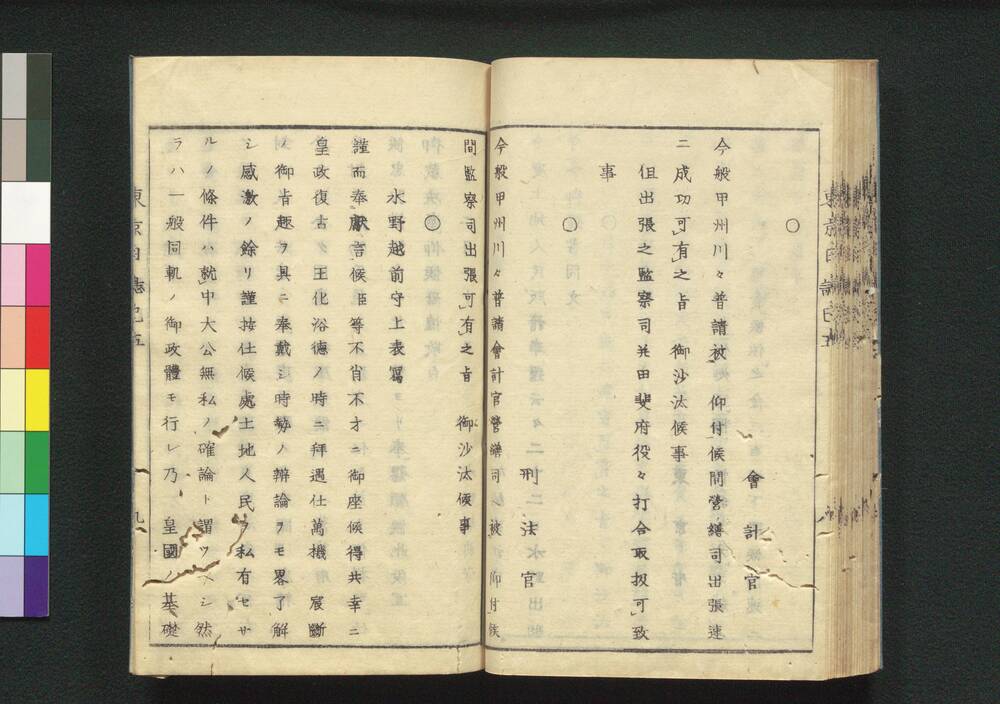 〇
會計官
今般甲州川々普請被　仰付候間營繕司出張速
ニ成功可有之旨　御沙汰候事
但出張之監察司并田斐府役々打合取扱可致
事
〇
刑法官
今般甲州川々普請會計官營繕司ㇸ被　仰付候
間監察司出張可有之旨　御沙汰候事
〇
水野越前守上表寫
謹而奉獻言候臣等不肖不才ニ御座候得共幸ニ
皇政復古ク王化浴德ノ時ニ拜遇仕萬機　宸斷
ノ御旨趣ヲ具ニ奉戴シ時勢ノ辯論ヲモ畧了解
シ感激ノ餘リ謹按仕候處土地人民ヲ私有セサ
ルノ條件ハ就中大公無私ノ確論ト謂ツヘシ然
ラハ一般同軌ノ御政體モ行レ乃　皇國ノ基礎
東京日誌己五
九